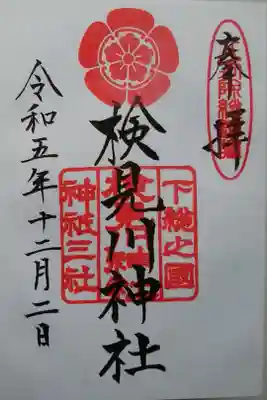 奉拝
検見川神社
下総之國
神祇三社
令和五年十二月二日